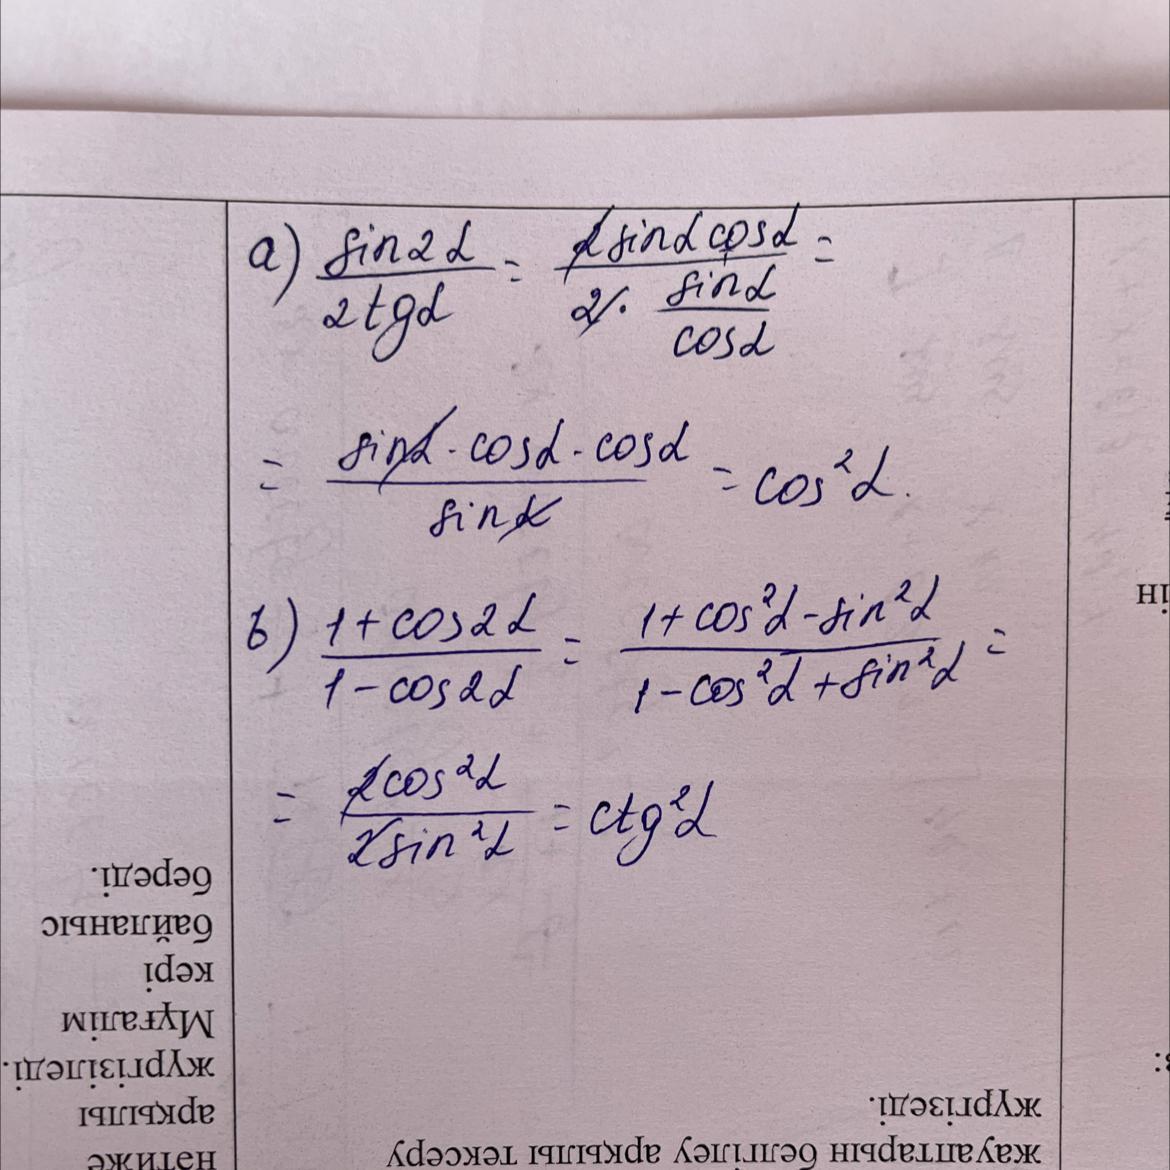 a) sin2α / 2tgα = 2sinα cosα / 2 · sinα / cosα =
= sinα · cosα · cosα / sinα = cos²α.
b) 1 + cos2α / 1 - cos2α = 1 + cos²α - sin²α / 1 - cos²α + sin²α =
= 2cos²α / 2sin²α = ctg²α
нәтиже
арқылы
жүргізіледі.
Мұғалім
кері
байланыс
береді.
жауаптарын белгілеу арқылы тексеру
жүргізеді.